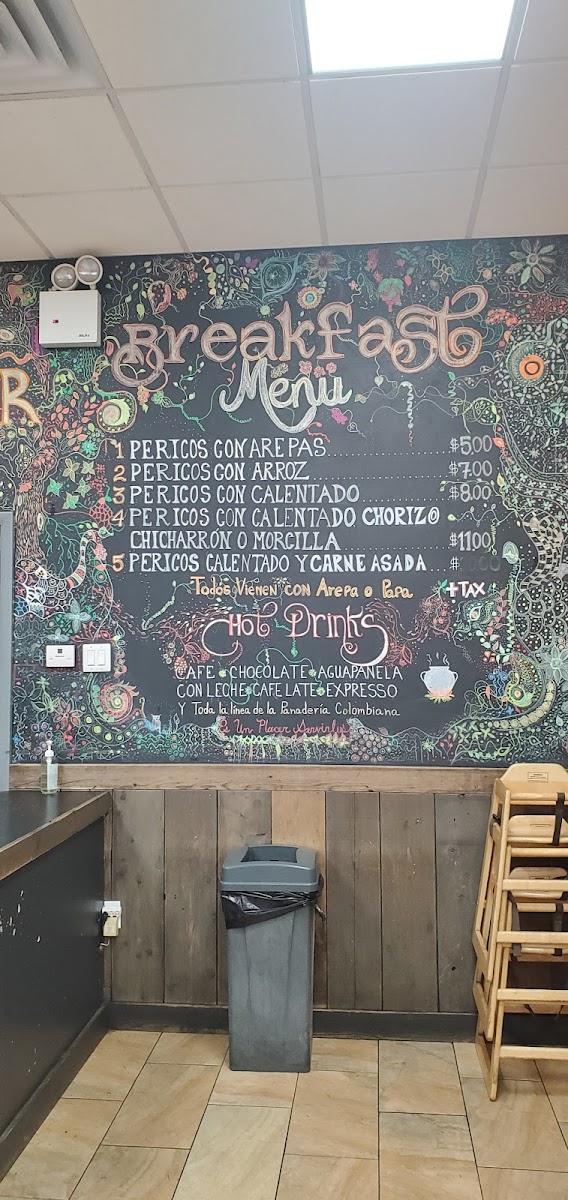 R
Breakfast
Menu
1 PERICOS CON AREPAS......$5.00
2 PERICOS CON ARROZ......$7.00
3 PERICOS CON CALENTADO......$8.00
4 PERICOS CON CALENTADO CHORIZO
CHICHARRÓN O MORCILLA......$11.00
5 PERICOS CALENTADO Y CARNE ASADA...$
Todos Vienen con Arepa o Papa +TAX
Hot Drinks
CAFE CHOCOLATE AGUAPANELA
CON LECHE CAFE LATE EXPRESSO
Y Toda la línea de la Panadería Colombiana
Es Un Placer Servirles